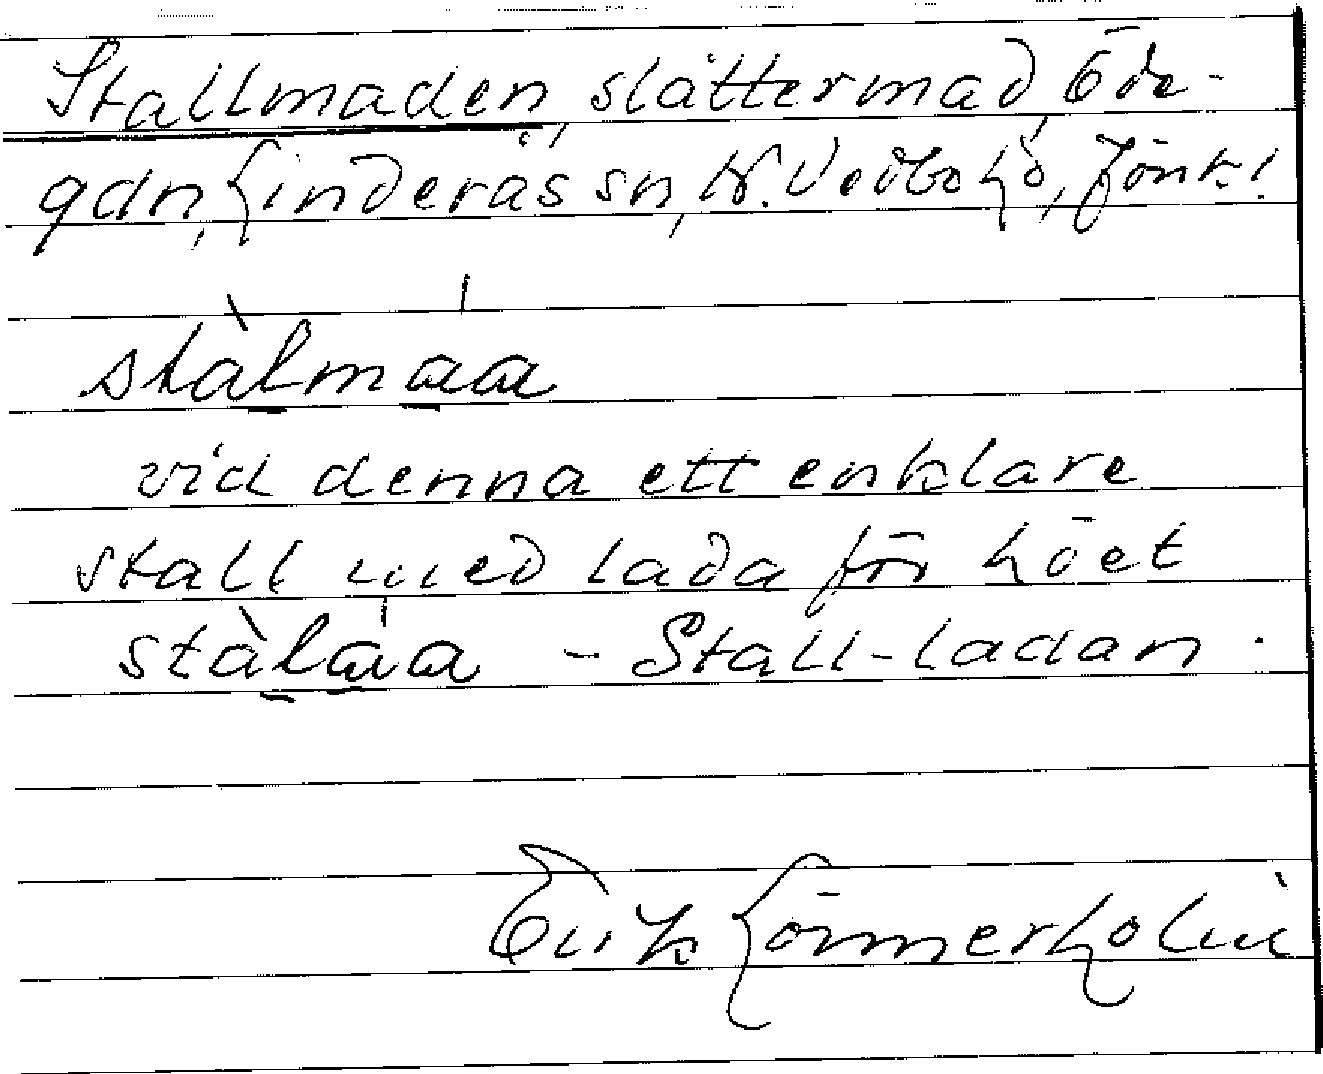 Stallmaden, slåttermad, Öde-
gdn, Linderås sn, N. Vedbo hd, Jönk.l.
stàlmáa
vid denna ett enklare
stall med lada för höet
stàláa - Stall-ladan.
Erik Lönnerholm